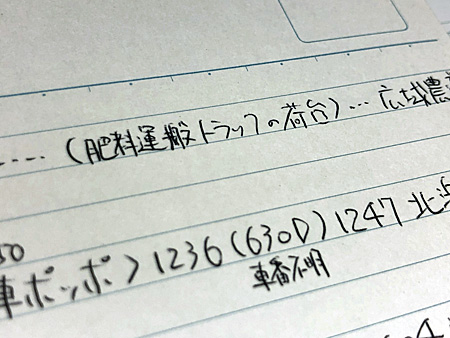 …‥（肥料運搬トラックの荷台）… 広域農
50
車ポッポ＞1236（630D）1247 北浜
車番不明